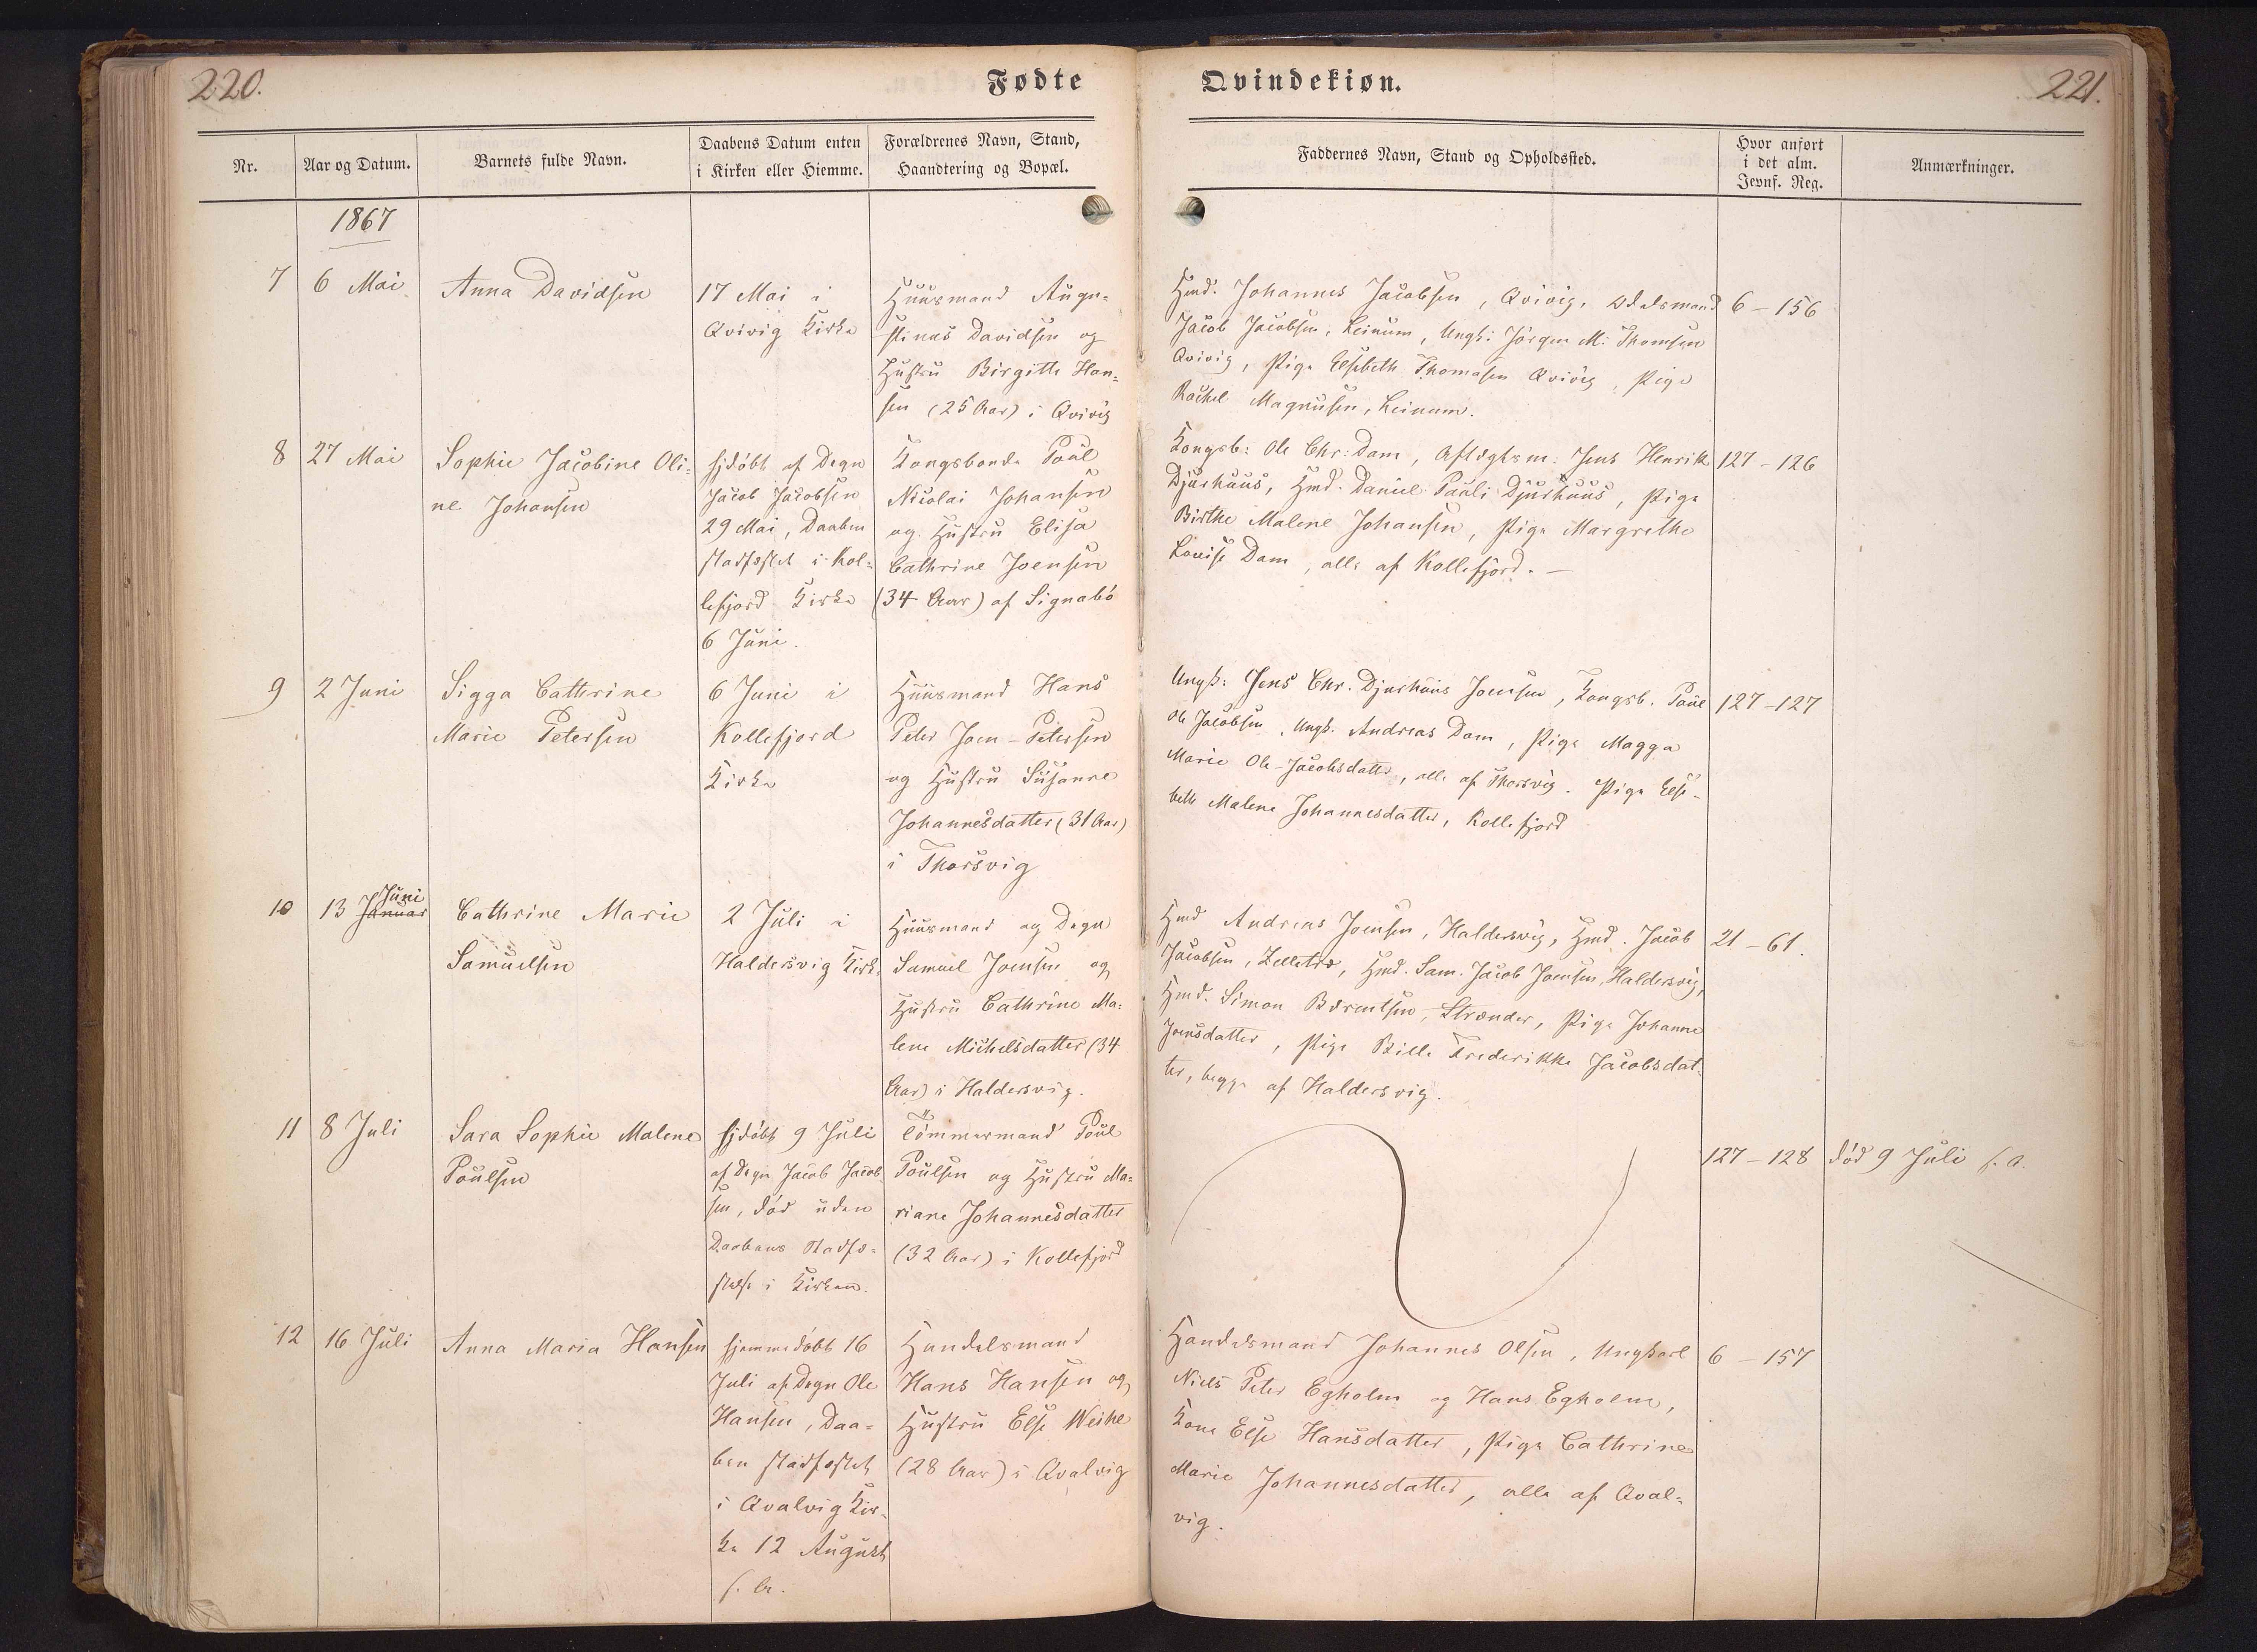 220.
Fødte
Qvindekiøn.
221.
Nr.
Aar og Datum.
Barnets fulde Navn.
Daabens Datum enten
i Kirken eller Hiemme.
Forældrenes Navn, Stand,
Haandtering og Bopæl.
Faddernes Navn, Stand og Opholdssted.
Hvor anført
i det alm.
Jevnf. Reg.
Anmærkninger.
1867
7
6 Mai
Anna Davidsen
17 Mai i
Qvivig Kirke
Huusmand Augu-
stinus Davidsen og
Hustru Birgitte Han-
sen (25 Aar) i Qvivig
Hmd. Johannes Jacobsen, Qvivig, Odelsmand
Jacob Jacobsen, Leinum, Ungk: Jörgen M: Thomsen
Qvivig, Pige Elsebeth Thomasen Qvivig, Pige
Rachel Magnusen, Leinum.
6 – 156
8
27 Mai
Sophie Jacobine Oli-
ne Johansen
hjdöbt af Degn
Jacob Jacobsen
29 Mai, Daaben
stadfæstet i Kol-
lefjord Kirke
6 Juni.
Kongsbonde Poul
Nicolai Johansen
og Hustru Elisa
Cathrine Joensen
(34 Aar) af Signabö
Kongsb: Ole Chr: Dam, Aftægtsm: Jens Henrik
Djurhuus, Hmd. Daniel Pauli Djurhuus, Pige
Birthe Malene Johansen, Pige Margrethe
Louise Dam, alle af Kollefjord. –
127 – 126
9
2 Juni
Sigga Cathrine
Marie Petersen
6 Juni i
Kollefjord
Kirke
Huusmand Hans
Peter Joen-Petersen
og Hustru Susanne
Johannesdatter (31 Aar)
i Thorsvig
Ungk: Jens Chr. Djurhuus Joensen, Kongsb. Poul
Ole Jacobsen, Ungk. Andreas Dam, Pige Magga
Marie Ole-Jacobsdatter, alle af Thorsvig. Pige Else-
beth Malene Johannesdatter, Kollefjord
127 – 127
10
Juni
13 Januar
Cathrine Marie
Samuelsen
2 Juli i
Haldersvig Kirke
Huusmand og Degn
Samuel Joensen og
Hustru Cathrine Ma-
lene Michelsdatter (34
Aar) i Haldersvig.
Hmd Andreas Joensen, Haldersvig, Hmd. Jacob
Jacobsen, Hmd. Sam. Jacob Joensen, Haldersvig,
Hmd. Simon Bærentsen, Strænder, Pige Johanne
Joensdatter, Pige Bille Frederikke Jacobsdat-
ter, begge af Haldersvig.
21 – 61.
11
8 Juli
Sara Sophie Malene
Poulsen
hjdöbt 9 Juli
af Degn Jacob Jacob
sen, död uden
Daabens Stadfæ-
stelse i Kirken.
Tömmermand Poul
Poulsen og Hustru Ma-
riane Johannesdatter
(32 Aar) i Kollefjord
127 – 128
död 9 Juli s. A.
12
16 Juli
Anna Maria Hansen
hjemmedöbt 16
Juli af Degn Ole
Hansen, Daa-
ben stadfæstet
i Qvalvig Kir-
ke 12 August
s. A.
Handelsmand
Hans Hansen og
Hustru Else Weihe
(28 Aar) i Qvalvig
Handelsmand Johannes Olsen, Ungkarl
Niels Peter Egholm og Hans Egholm,
Kone Else Hansdatter, Pige Cathrine
Marie Johannesdatter, alle af Qval-
vig.
6 – 157